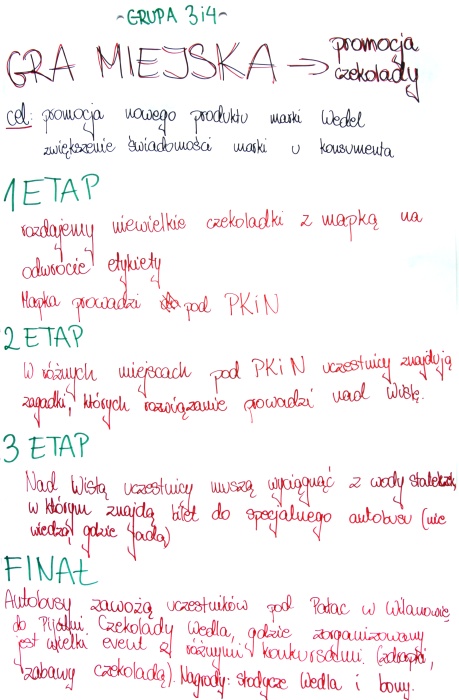 ~GRUPA 3i4~
GRA MIEJSKA → promocja
czekolady
cel: promocja nowego produktu marki Wedel
zwiększenie świadomości marki u konsumenta
1 ETAP
rozdajemy niewielkie czekoladki z mapką na
odwrocie etykiety
Mapka prowadzi pod PKiN
2 ETAP
W różnych miejscach pod PKiN uczestnicy znajdują
zagadki, których rozwiązanie prowadzi nad Wisłę.
3 ETAP
Nad Wisłą uczestnicy muszą wyciągnąć z wody stateczek,
w którym znajdą bilet do specjalnego autobusu (nie
wiedzą gdzie jadą)
FINAŁ
Autobusy zawożą uczestników pod Pałac w Wilanowie
do Pijalni Czekolady Wedla, gdzie zorganizowany
jest wielki event z różnymi konkursami. (zdrapki,
zabawy czekoladą). Nagrody: słodycze Wedla i bony.